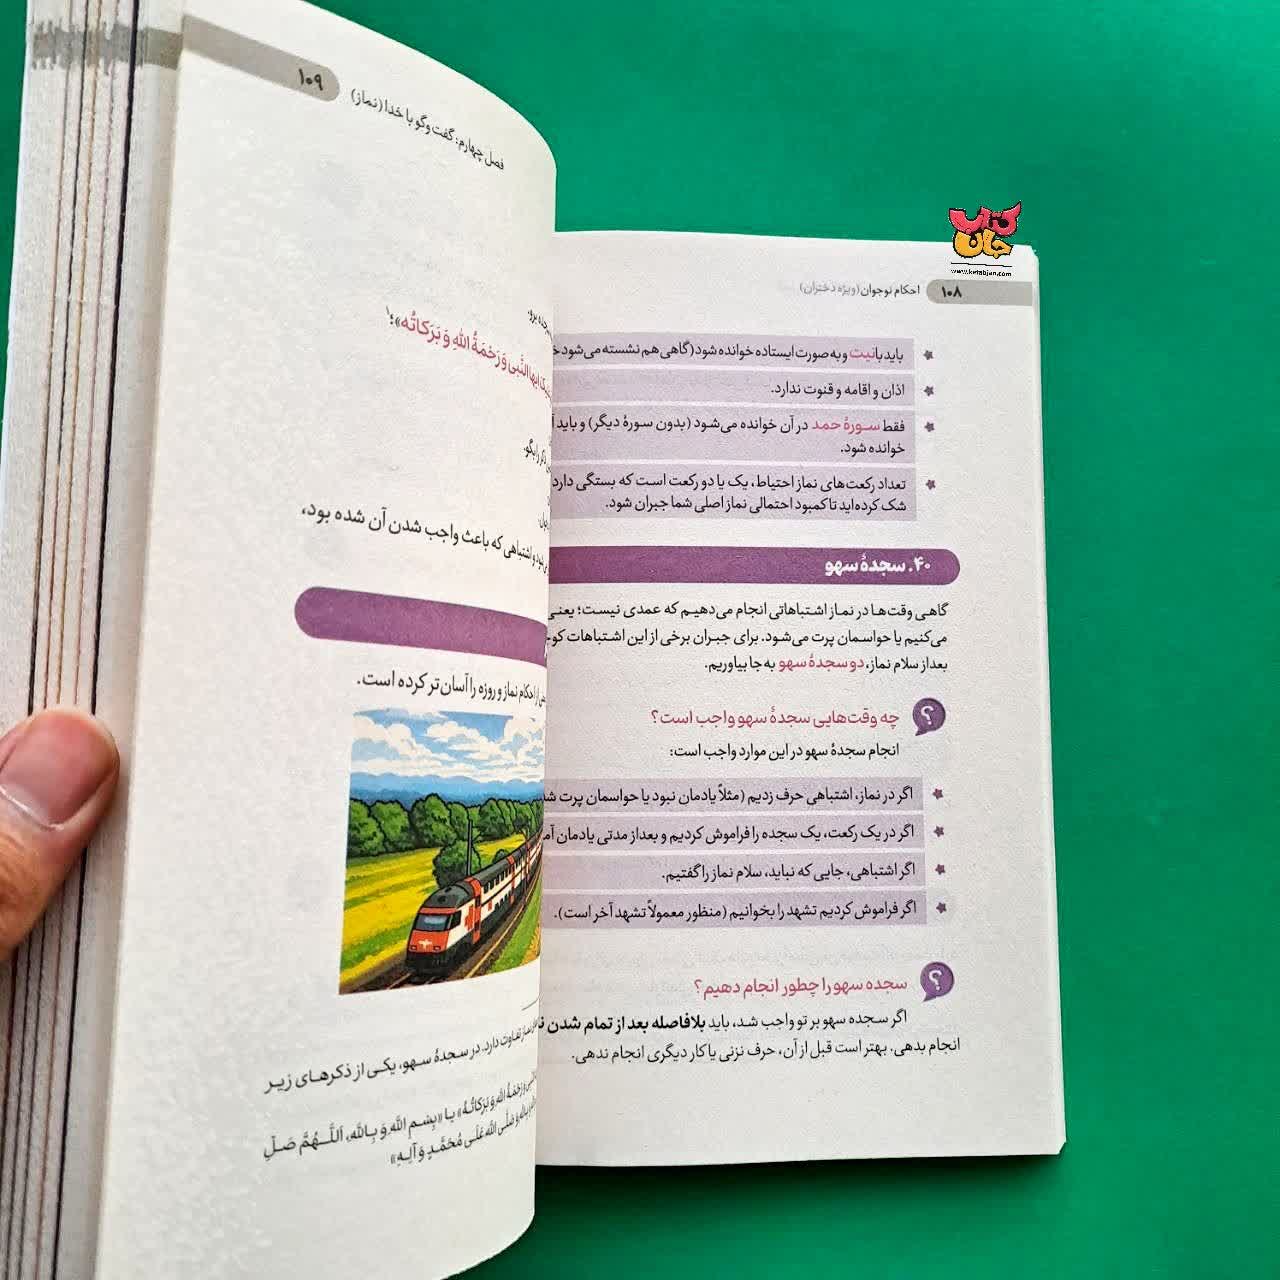 کتاب جان
www.ketabjan.com
۱۰۸
احکام نوجوان (ویژه دختران)
باید با نیت و به صورت ایستاده خوانده شود (گاهی هم نشسته می‌شود
اذان و اقامه و قنوت ندارد.
فقط سورهٔ حمد در آن خوانده می‌شود (بدون سورهٔ دیگر) و باید
خوانده شود.
تعداد رکعت‌های نماز احتیاط، یک یا دو رکعت است که بستگی دارد
شک کرده‌اید تا کمبود احتمالی نماز اصلی شما جبران شود.
۴۰. سجدهٔ سهو
گاهی وقت‌ها در نماز اشتباهاتی انجام می‌دهیم که عمدی نیست؛ یعنی
می‌کنیم یا حواسمان پرت می‌شود. برای جبران برخی از این اشتباهات
بعد از سلام نماز، دو سجدهٔ سهو به جا بیاوریم.
؟ چه وقت‌هایی سجدهٔ سهو واجب است؟
انجام سجدهٔ سهو در این موارد واجب است:
اگر در نماز، اشتباهی حرف زدیم (مثلاً یادمان نبود یا حواسمان پرت
اگر در یک رکعت، یک سجده را فراموش کردیم و بعد از مدتی یادمان
اگر اشتباهی، جایی که نباید، سلام نماز را گفتیم.
اگر فراموش کردیم تشهد را بخوانیم (منظور معمولاً تشهد آخر است).
؟ سجده سهو را چطور انجام دهیم؟
اگر سجده سهو بر تو واجب شد، باید بلافاصله بعد از تمام شدن
انجام بدهی. بهتر است قبل از آن، حرف نزنی یا کار دیگری انجام ندهی.
فصل چهارم: گفت‌وگو با خدا (نماز)
۱۰۹
برو.
ایها النَّبی وَ رَحْمَةُ اللهِ وَ بَرَکاتُه»؛۱
ذکر را بگو.
و اشتباهی که باعث واجب شدن آن شده بود،
از احکام نماز و روزه را آسان‌تر کرده است.
تفاوت دارد. در سجدهٔ سهو، یکی از ذکرهای زیر
وَ رَحْمَةُ اللهِ وَ بَرَکاتُهُ» یا «بِسْمِ اللهِ وَ بِاللهِ، اَللّهُمَّ صَلِّ
وَ صَلَّی اللهُ عَلَی مُحَمَّدٍ وَ آلِهِ»